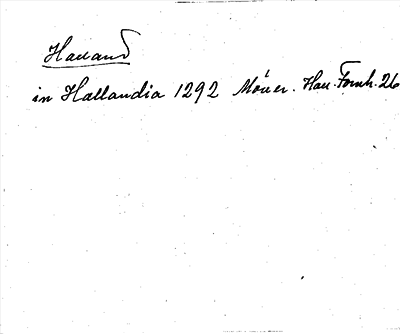 Halland
in Hallandia 1292 Möller. Hall. Fornh. 26